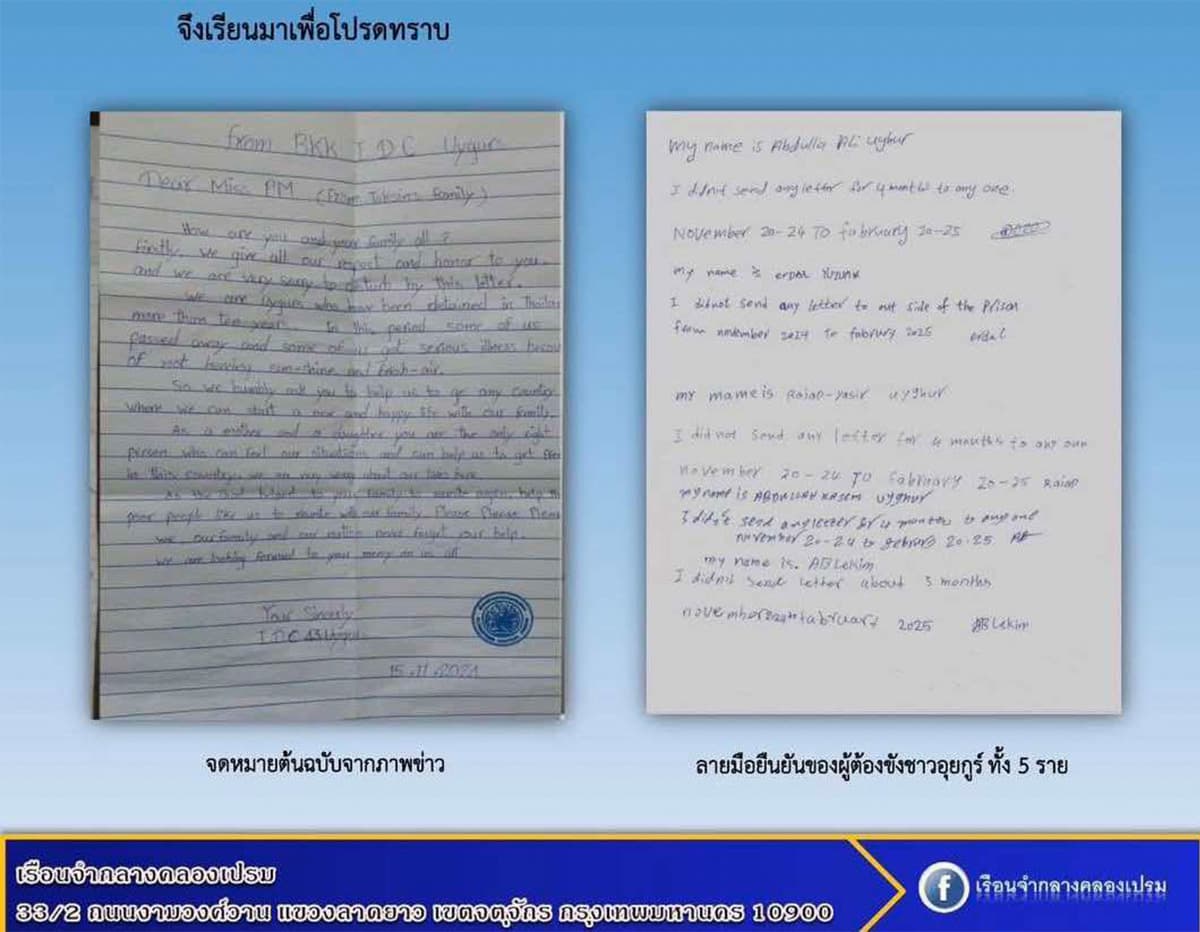 จึงเรียนมาเพื่อโปรดทราบ
from BKK I D C Uygur
Dear Miss PM (from Taksins family)
How are you and your family all ?
Firstly, we give all our respect and honor to you.
and we are very sorry to disturb by this letter.
We are Uygurs who have been detained in Thailan
more than ten years. In this period some of us
passed away and some of us got serious illness becau
of not having sun-shine and fresh-air.
So we humbly ask you to help us to go any country
where we can start a new and happy life with our family.
As a mother and a daughter you are the only right
person who can feel our situations and can help us to get
we are very about our
to your family to help
poor people like us to with our family. Please Please Please
we our family and our nation never forget your help.
We are looking forward to your mercy on us all
Your Sincerly
I D C 43 Uygur
15.11.2024
จดหมายต้นฉบับจากภาพข่าว
my name is Abdulla Ali uyghur
I didnt send any letter for 4 months to any one.
November 20-24 TO fabruary 20-25
my name is erdal
I didnot send any letter to out side of the Prison
from november 2024 to fabrury 2025 erdal
my mame is Raiap-yasir uyghur
I did not send any letter for 4 months to any oun
november 20-24 TO Fabrinary 20-25 Raiap
my name is ABDULLAH KASEM UYGHUR
I didn't send any letter for 4 months to any one
november 20-24 to 20-25 AB
my name is. ABLekim
I didn't send letter about 3 months
november fabruary 2025 ABLekim
ลายมือยืนยันของผู้ต้องขังชาวอุยกูร์ ทั้ง 5 ราย
เรือนจำกลางคลองเปรม
33/2 ถนนงามวงศ์วาน แขวงลาดยาว เขตจตุจักร กรุงเทพมหานคร 10900
f เรือนจำกลางคลองเปรม